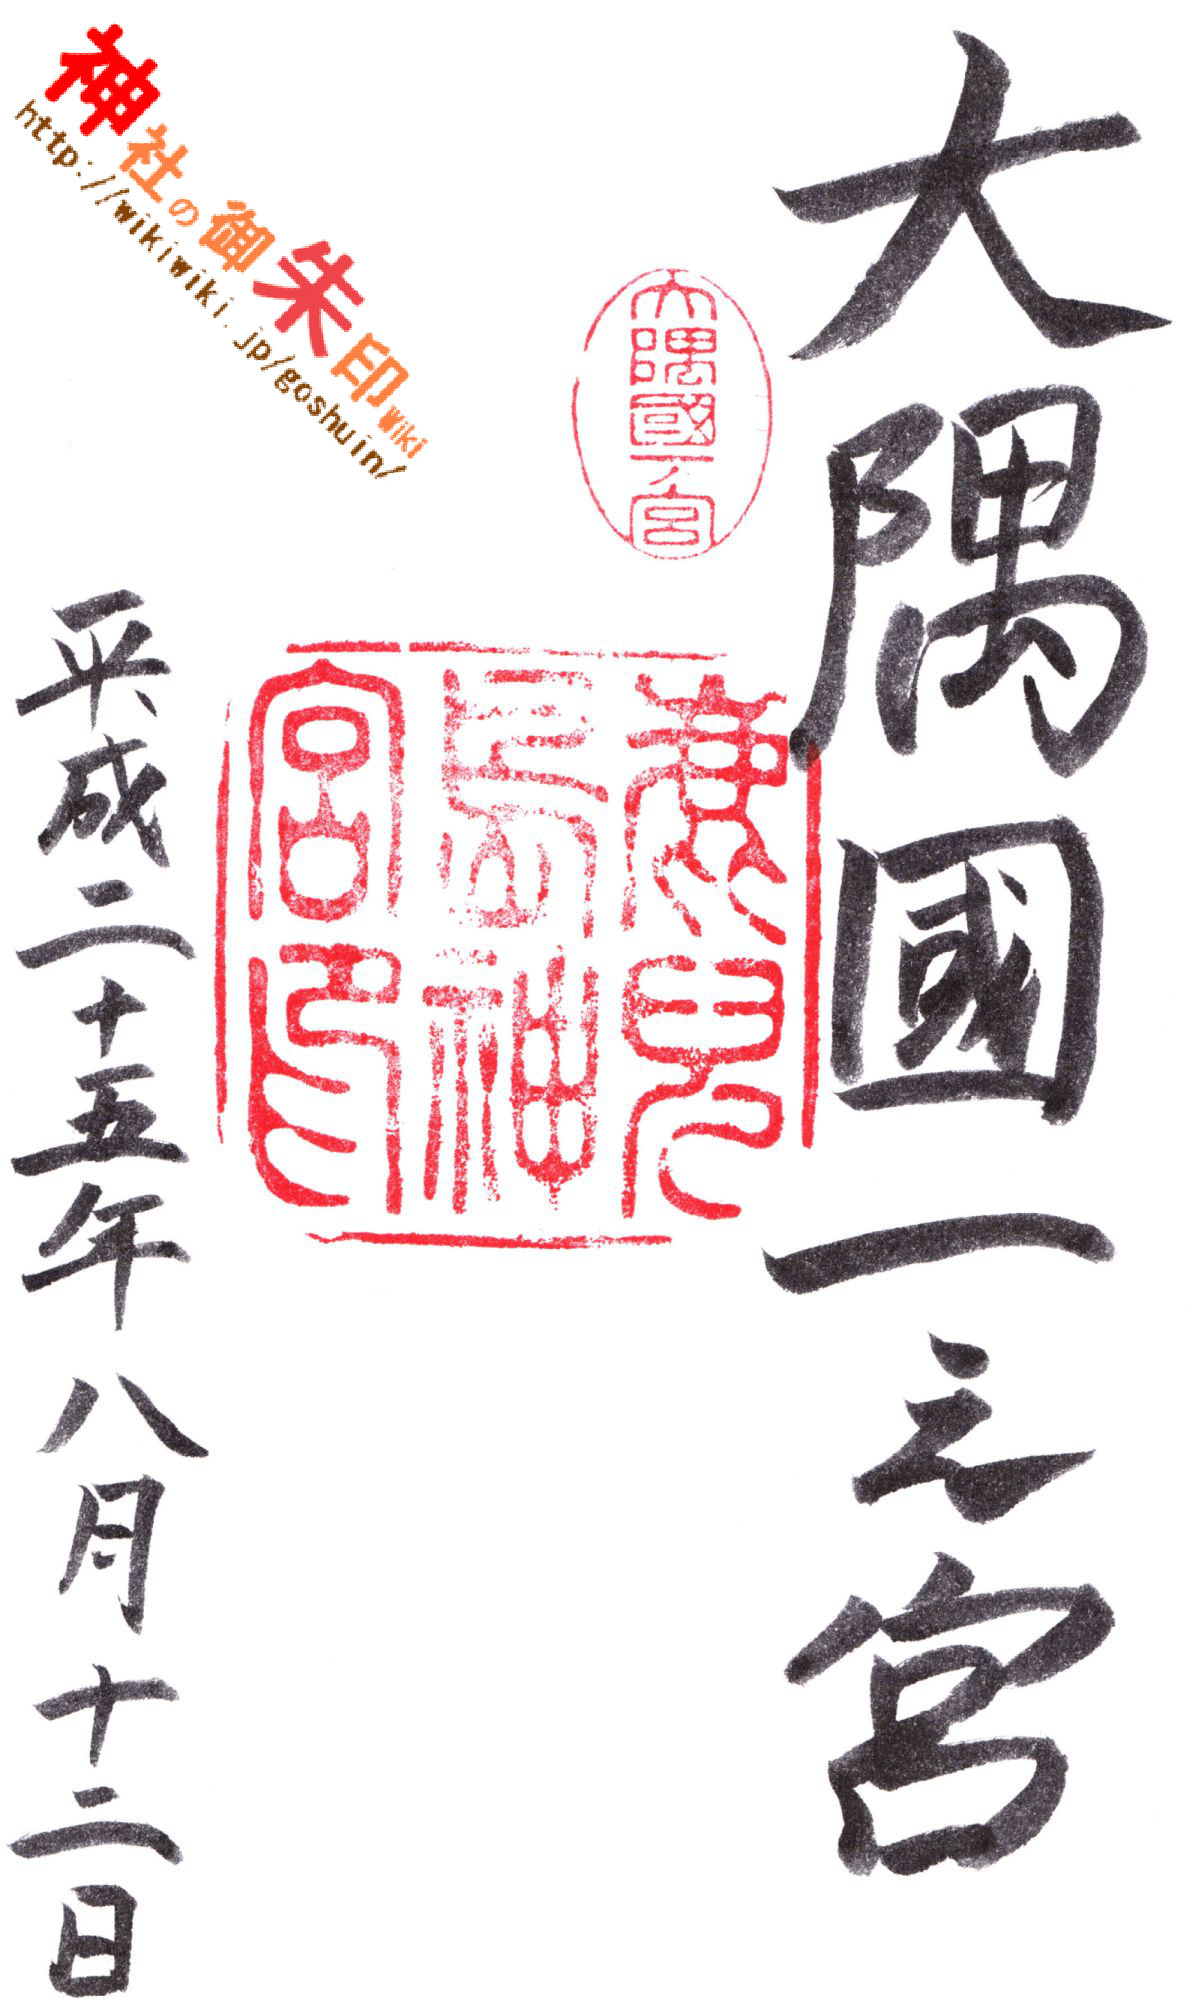 大隅國一之宮
大隅國一ノ宮
鹿兒
島神
宮印
平成二十五年八月十二日
神社の御朱印Wiki
http://wikiwiki.jp/goshuin/